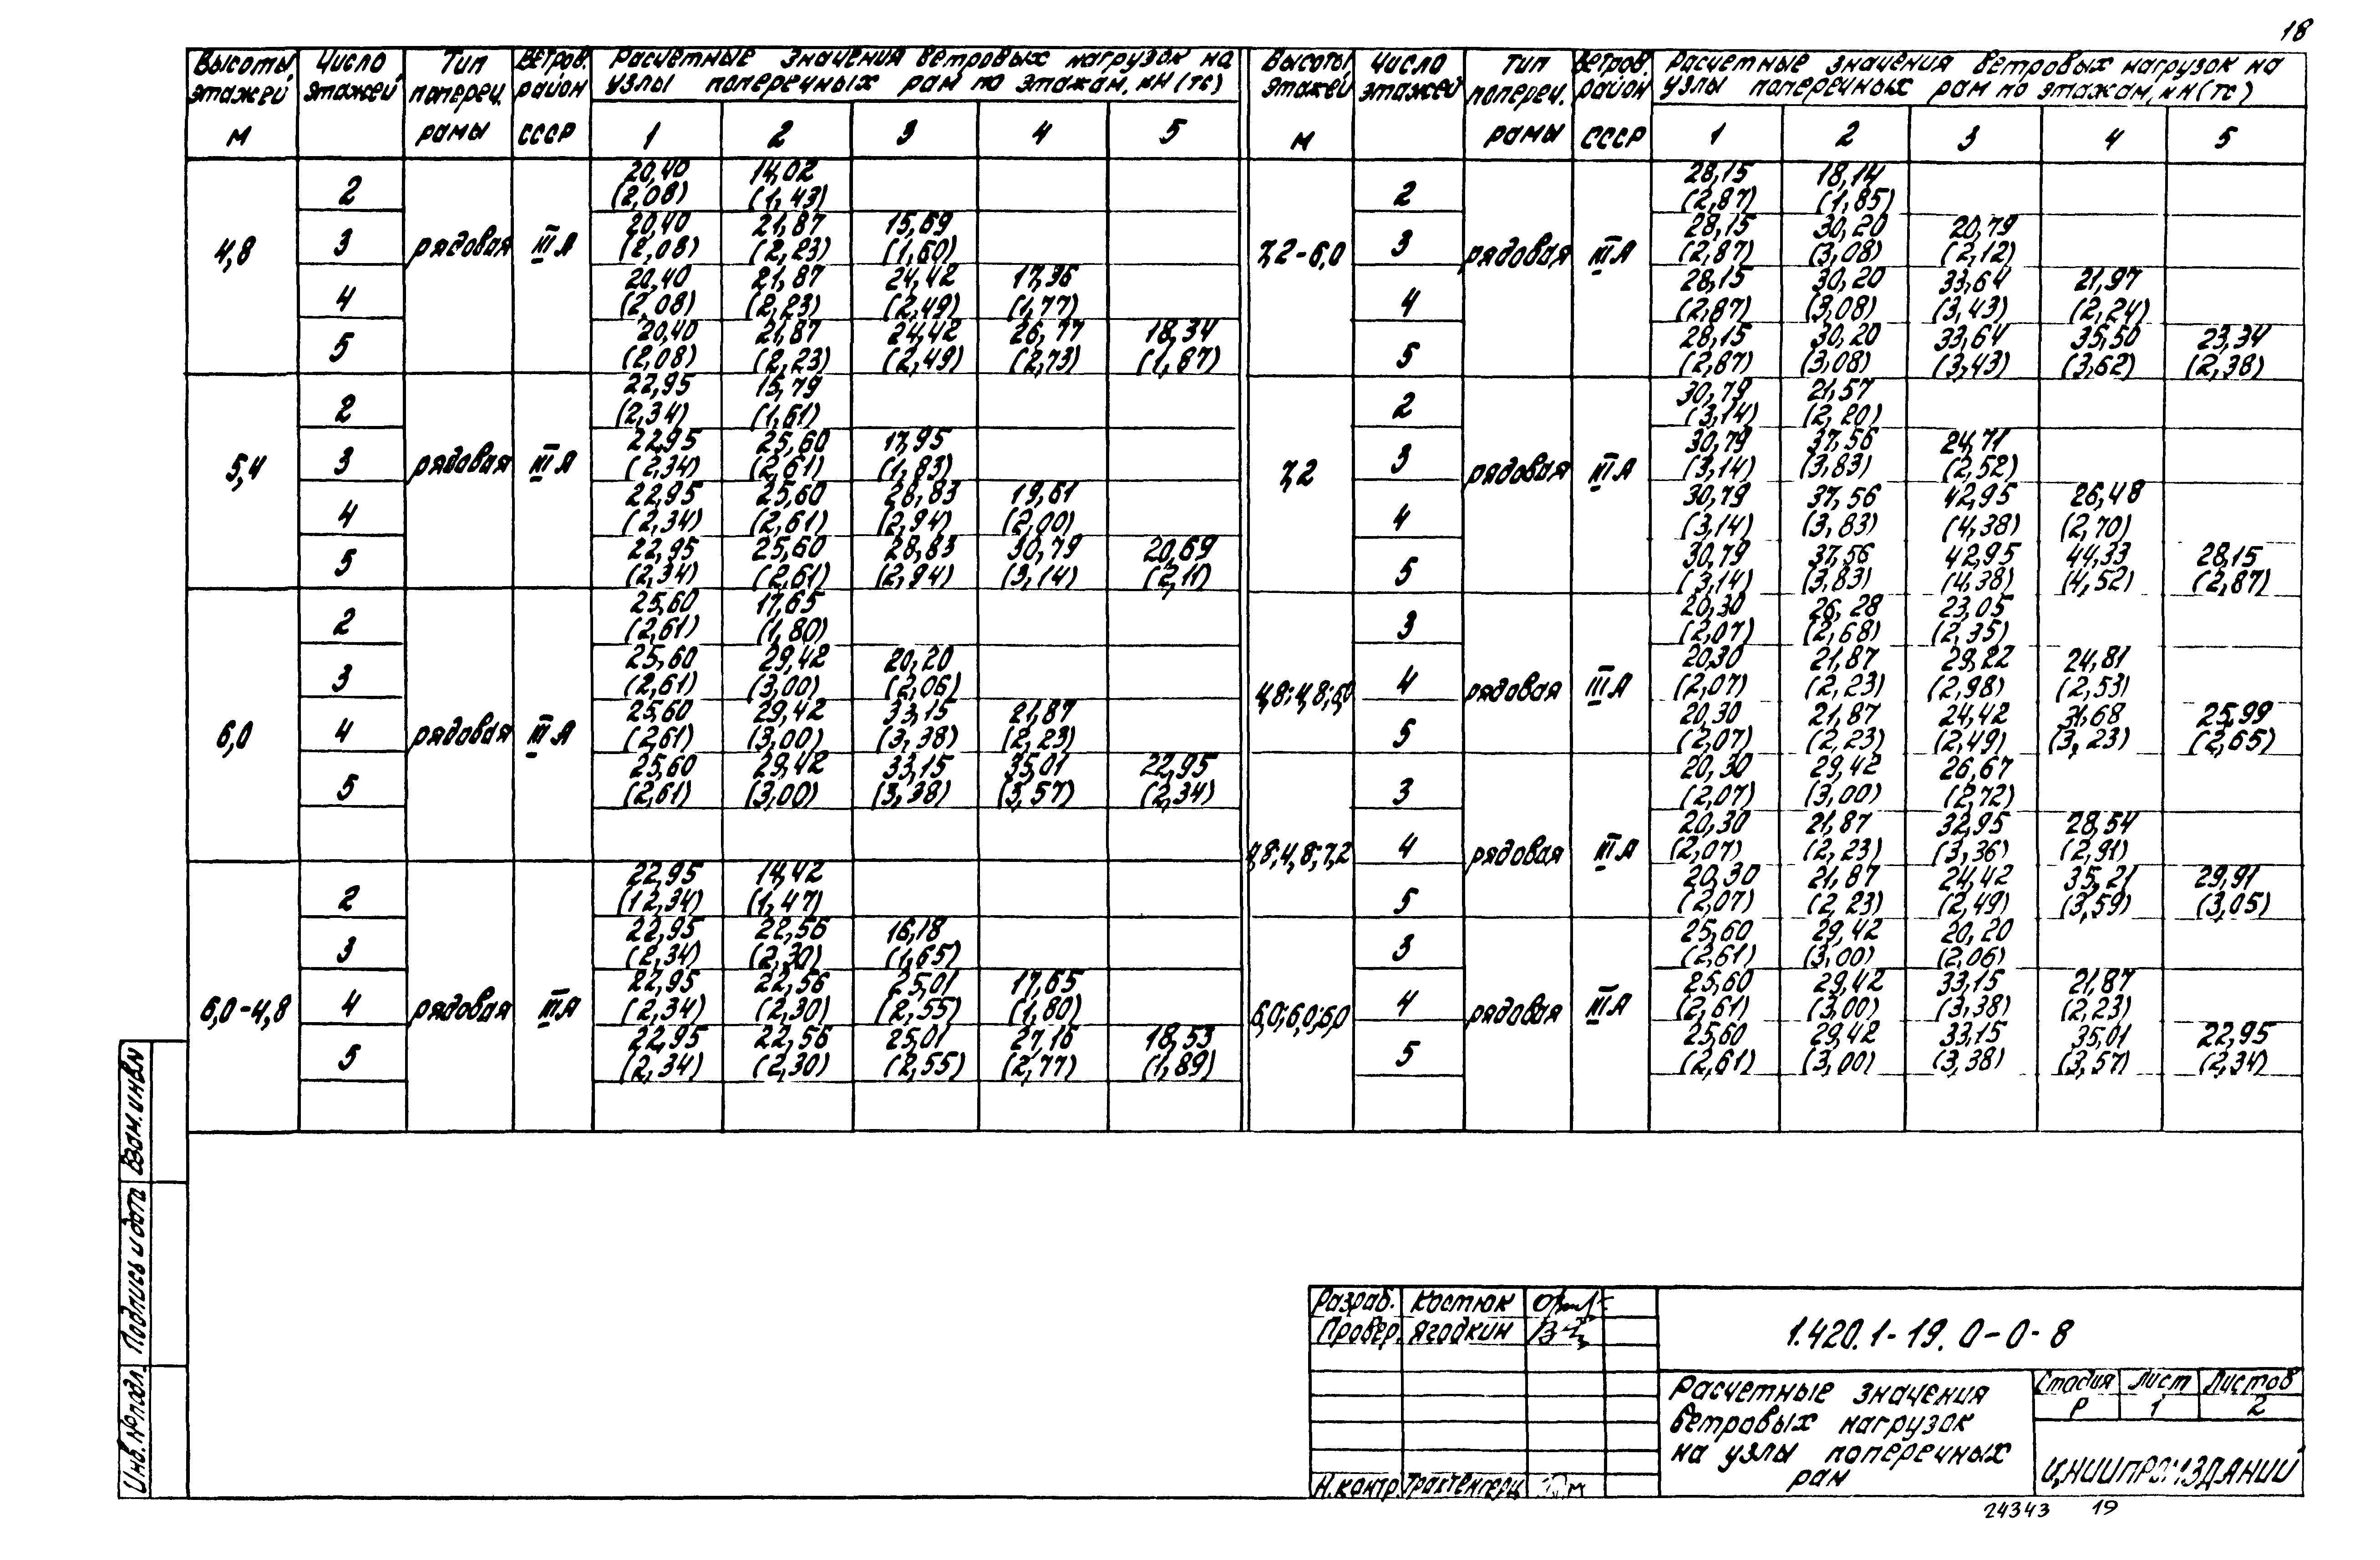 18
Высоты этажей, м | Число этажей | Тип попереч. рамы | Ветров. район СССР | Расчетные значения ветровых нагрузок на узлы поперечных рам по этажам, кН (тс)
1 | 2 | 3 | 4 | 5
4,8 | рядовая | III А
2 | 20,40 (2,08) | 14,02 (1,43)
3 | 20,40 (2,08) | 21,87 (2,23) | 15,69 (1,60)
4 | 20,40 (2,08) | 21,87 (2,23) | 24,42 (2,49) | 17,36 (1,77)
5 | 20,40 (2,08) | 21,87 (2,23) | 24,42 (2,49) | 26,77 (2,73) | 18,34 (1,87)
5,4 | рядовая | III А
2 | 22,95 (2,34) | 15,79 (1,61)
3 | 22,95 (2,34) | 25,60 (2,61) | 17,95 (1,83)
4 | 22,95 (2,34) | 25,60 (2,61) | 28,83 (2,94) | 19,61 (2,00)
5 | 22,95 (2,34) | 25,60 (2,61) | 28,83 (2,94) | 30,79 (3,14) | 20,69 (2,11)
6,0 | рядовая | III А
2 | 25,60 (2,61) | 17,65 (1,80)
3 | 25,60 (2,61) | 29,42 (3,00) | 20,20 (2,06)
4 | 25,60 (2,61) | 29,42 (3,00) | 33,15 (3,38) | 21,87 (2,23)
5 | 25,60 (2,61) | 29,42 (3,00) | 33,15 (3,38) | 35,01 (3,57) | 22,95 (2,34)
6,0-4,8 | рядовая | III А
2 | 22,95 (12,34) | 14,42 (1,47)
3 | 22,95 (2,34) | 22,56 (2,30) | 16,18 (1,65)
4 | 22,95 (2,34) | 22,56 (2,30) | 25,01 (2,55) | 17,65 (1,80)
5 | 22,95 (2,34) | 22,56 (2,30) | 25,01 (2,55) | 27,16 (2,77) | 18,53 (1,89)
Высоты этажей, м | Число этажей | Тип попереч. рамы | Ветров. район СССР | Расчетные значения ветровых нагрузок на узлы поперечных рам по этажам, кН (тс)
1 | 2 | 3 | 4 | 5
7,2-6,0 | рядовая | III А
2 | 28,15 (2,87) | 18,14 (1,85)
3 | 28,15 (2,87) | 30,20 (3,08) | 20,79 (2,12)
4 | 28,15 (2,87) | 30,20 (3,08) | 33,64 (3,43) | 21,97 (2,24)
5 | 28,15 (2,87) | 30,20 (3,08) | 33,64 (3,43) | 35,50 (3,62) | 23,34 (2,38)
7,2 | рядовая | III А
2 | 30,79 (3,14) | 21,57 (2,20)
3 | 30,79 (3,14) | 37,56 (3,83) | 24,71 (2,52)
4 | 30,79 (3,14) | 37,56 (3,83) | 42,95 (4,38) | 26,48 (2,70)
5 | 30,79 (3,14) | 37,56 (3,83) | 42,95 (4,38) | 44,33 (4,52) | 28,15 (2,87)
4,8; 4,8; 6,0 | рядовая | III А
3 | 20,30 (2,07) | 26,28 (2,68) | 23,05 (2,35)
4 | 20,30 (2,07) | 21,87 (2,23) | 29,22 (2,98) | 24,81 (2,53)
5 | 20,30 (2,07) | 21,87 (2,23) | 24,42 (2,49) | 31,68 (3,23) | 25,99 (2,65)
4,8; 4,8; 7,2 | рядовая | III А
3 | 20,30 (2,07) | 29,42 (3,00) | 26,67 (2,72)
4 | 20,30 (2,07) | 21,87 (2,23) | 32,95 (3,36) | 28,54 (2,91)
5 | 20,30 (2,07) | 21,87 (2,23) | 24,42 (2,49) | 35,21 (3,59) | 29,91 (3,05)
6,0; 6,0; 6,0 | рядовая | III А
3 | 25,60 (2,61) | 29,42 (3,00) | 20,20 (2,06)
4 | 25,60 (2,61) | 29,42 (3,00) | 33,15 (3,38) | 21,87 (2,23)
5 | 25,60 (2,61) | 29,42 (3,00) | 33,15 (3,38) | 35,01 (3,57) | 22,95 (2,34)
Взам. инв. N
Подпись и дата
Инв. № подл.
Разраб. Костюк
Провер. Ягодкин
Н. контр. Трахтенгерц
1.420.1-19.0-0-8
Расчетные значения
ветровых нагрузок
на узлы поперечных
рам
Стадия | Лист | Листов
Р | 1 | 2
ЦНИИПРОМЗДАНИЙ
24343 19